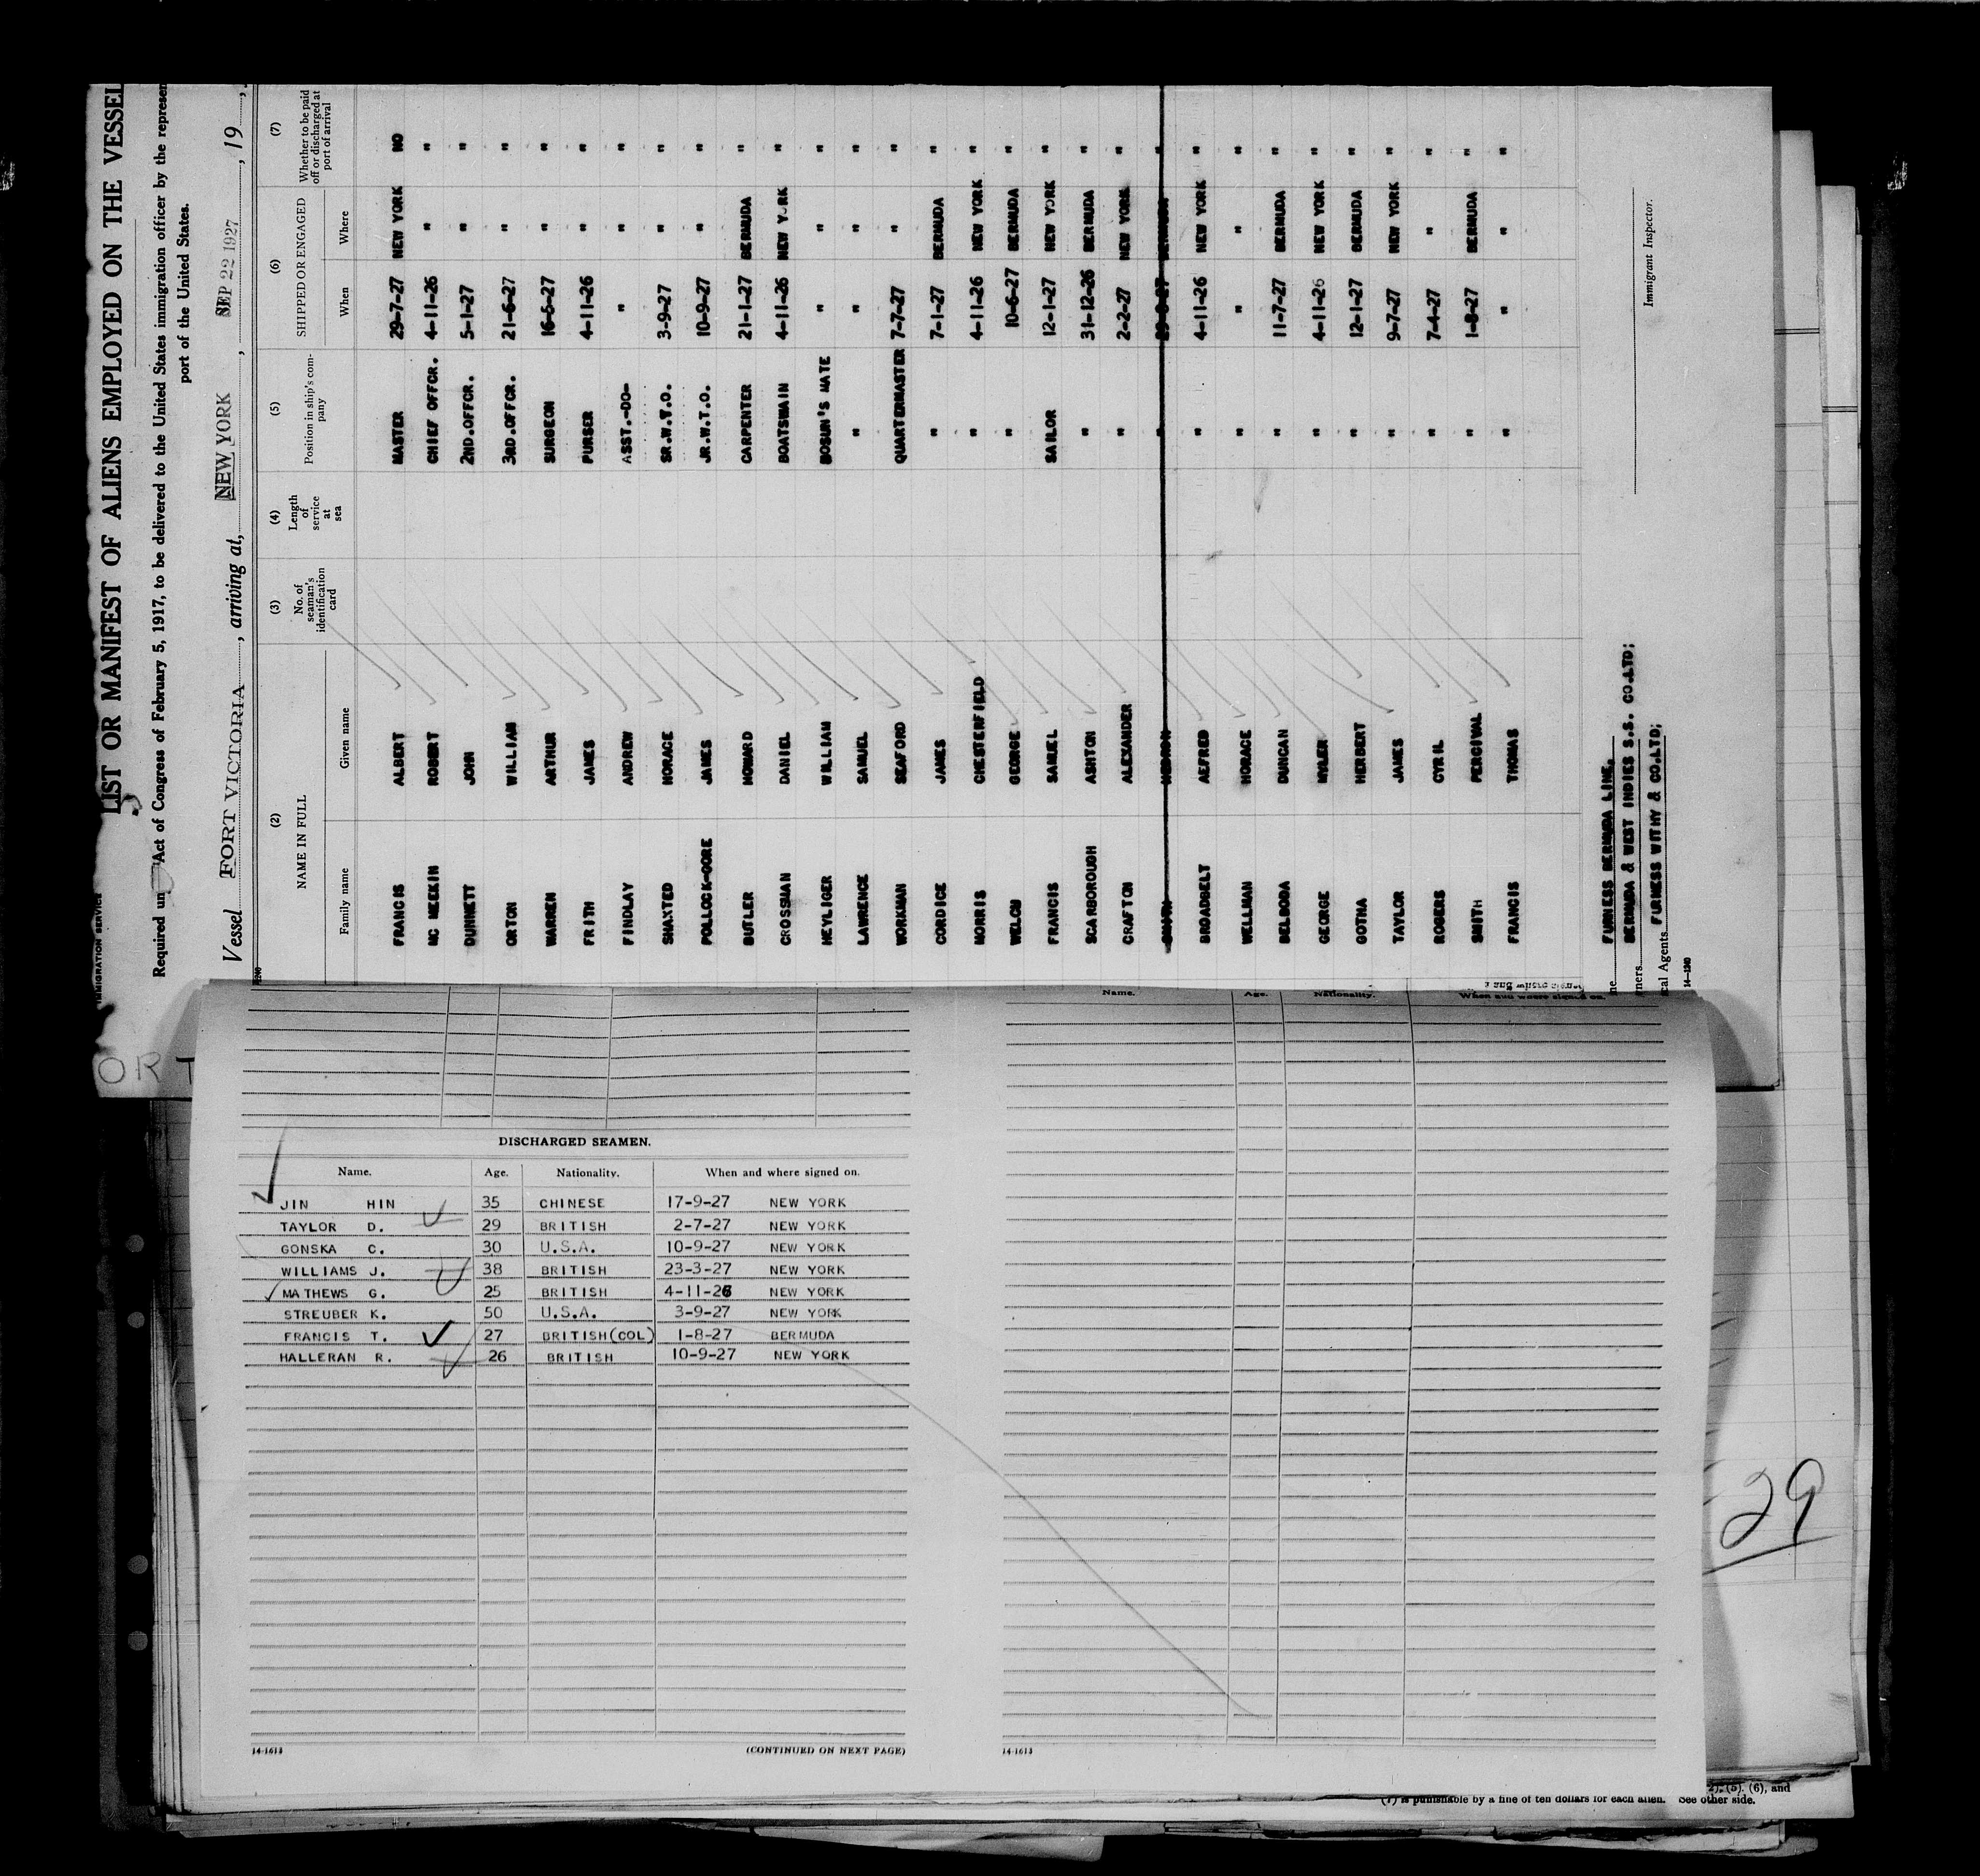 IMMIGRATION SERVICE
LIST OR MANIFEST OF ALIENS EMPLOYED ON THE VESSEL
Required un Act of Congress of February 5, 1917, to be delivered to the United States immigration officer by the represen
port of the United States.
Vessel FORT VICTORIA, arriving at, NEW YORK, SEP 22 1927, 19
(2) (3) (4) (5) (6) (7)
NAME IN FULL No. of seaman's identification card Length of service at sea Position in ship's company SHIPPED OR ENGAGED Whether to be paid off or discharged at port of arrival
Family name Given name When Where
FRANCIS ALBERT MASTER 29-7-27 NEW YORK NO
MC MEEKIN ROBERT CHIEF OFFCR. 4-11-26 " "
DUNNETT JOHN 2ND.OFFCR. 5-1-27 " "
ORTON WILLIAM 3RD.OFFCR. 21-6-27 " "
WARREN ARTHUR SURGEON 16-5-27 " "
FRITH JAMES PURSER 4-11-26 " "
FINDLAY ANDREW ASST.-DO- " " "
SHAXTED HORACE SR.W.T.O. 3-9-27 " "
POLLOCK-GORE JAMES JR.W.T.O. 10-9-27 " "
BUTLER HOWARD CARPENTER 21-1-27 BERMUDA "
CROSSMAN DANIEL BOATSWAIN 4-11-26 NEW YORK "
HEYLIGER WILLIAM BOSUN'S MATE " " "
LAWRENCE SAMUEL " " " "
WORKMAN SEAFORD QUARTERMASTER 7-7-27 " "
CORDICE JAMES " 7-1-27 BERMUDA "
MORRIS CHESTERFIELD " 4-11-26 NEW YORK "
WELCH GEORGE " 10-6-27 BERMUDA "
FRANCIS SAMUEL SAILOR 12-1-27 NEW YORK "
SCARBOROUGH ASHTON " 31-12-26 BERMUDA "
CRAFTON ALEXANDER " 2-2-27 NEW YORK "
BERMUDA "
BROADBELT AEFRED " 4-11-26 NEW YORK "
WELLMAN HORACE " " " "
BELBODA DUNCAN " 11-7-27 BERMUDA "
GEORGE MYLER " 4-11-26 NEW YORK "
GOTHA HERBERT " 12-1-27 BERMUDA "
TAYLOR JAMES " 9-7-27 NEW YORK "
ROGERS CYRIL " 7-4-27 " "
SMITH PERCIVAL " 1-8-27 BERMUDA "
FRANCIS THOMAS " " " "
ne FURNESS BERMUDA LINE.
ners BERMUDA & WEST INDIES S.S. CO.LTD;
cal Agents FURNESS WITHY & CO.LTD;
Immigrant Inspector.
14-1240
ORT
Name. Age. Nationality. When and where signed on.
DISCHARGED SEAMEN.
Name. Age. Nationality. When and where signed on.
JIN HIN 35 CHINESE 17-9-27 NEW YORK
TAYLOR D. 29 BRITISH 2-7-27 NEW YORK
GONSKA C. 30 U.S.A. 10-9-27 NEW YORK
WILLIAMS J. 38 BRITISH 23-3-27 NEW YORK
MATHEWS G. 25 BRITISH 4-11-26 NEW YORK
STREUBER K. 50 U.S.A. 3-9-27 NEW YORK
FRANCIS T. 27 BRITISH(COL) 1-8-27 BERMUDA
HALLERAN R. 26 BRITISH 10-9-27 NEW YORK
14-1613 (CONTINUED ON NEXT PAGE)
14-1613
29
(5), (6), and
(7) is punishable by a fine of ten dollars for each alien. See other side.